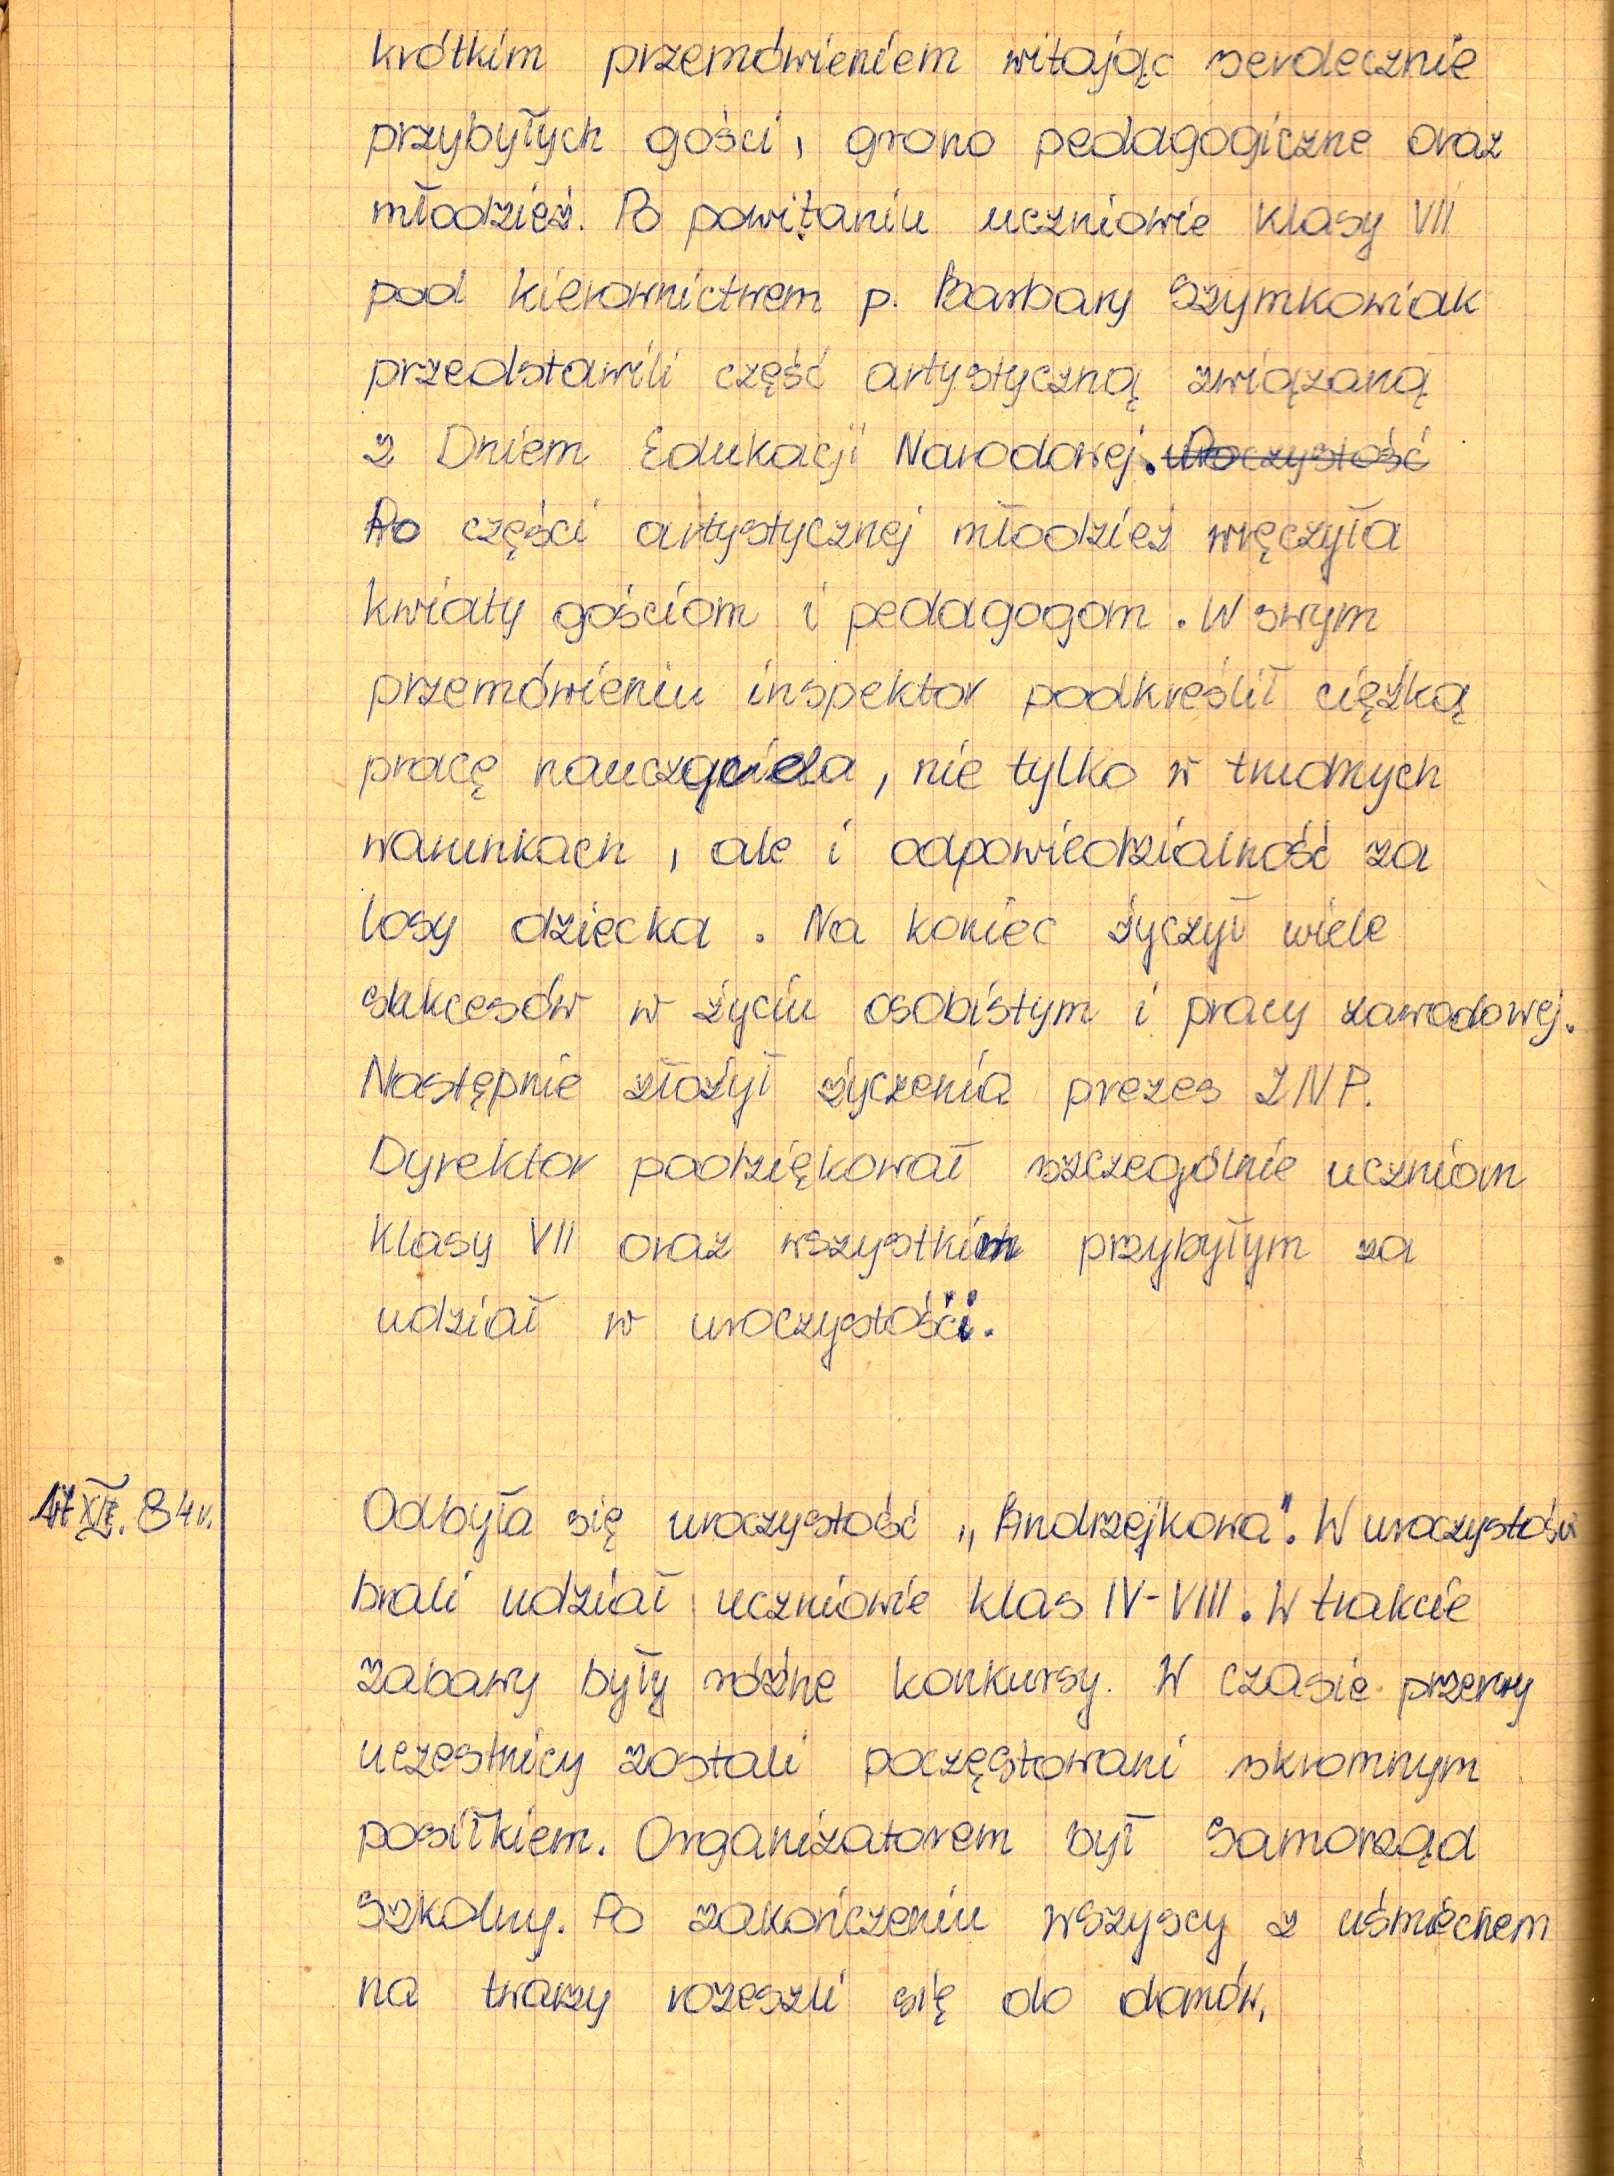 krótkim przemówieniem witając serdecznie
przybyłych gości, grono pedagogiczne oraz
młodzież. Po powitaniu uczniowie klasy VII
pod kierownictwem p. Barbary Szymkowiak
przedstawili część artystyczną związaną
z Dniem Edukacji Narodowej. uroczystość
Po części artystycznej młodzież wręczyła
kwiaty gościom i pedagogom. W swym
przemówieniu inspektor podkreślił ciężką
pracę nauczyciela, nie tylko w trudnych
warunkach, ale i odpowiedzialność za
losy dziecka. Na koniec życzył wiele
sukcesów w życiu osobistym i pracy zawodowej.
Następnie złożył życzenia prezes ZNP.
Dyrektor podziękował szczególnie uczniom
klasy VII oraz wszystkim przybyłym za
udział w uroczystości.
XII. 84r. Odbyła się uroczystość „Andrzejkowa". W uroczystości
brali udział uczniowie klas IV-VIII. W trakcie
zabawy były różne konkursy. W czasie przerwy
uczestnicy zostali poczęstowani skromnym
posiłkiem. Organizatorem był Samorząd
Szkolny. Po zakończeniu wszyscy z uśmiechem
na twarzy rozeszli się do domów.